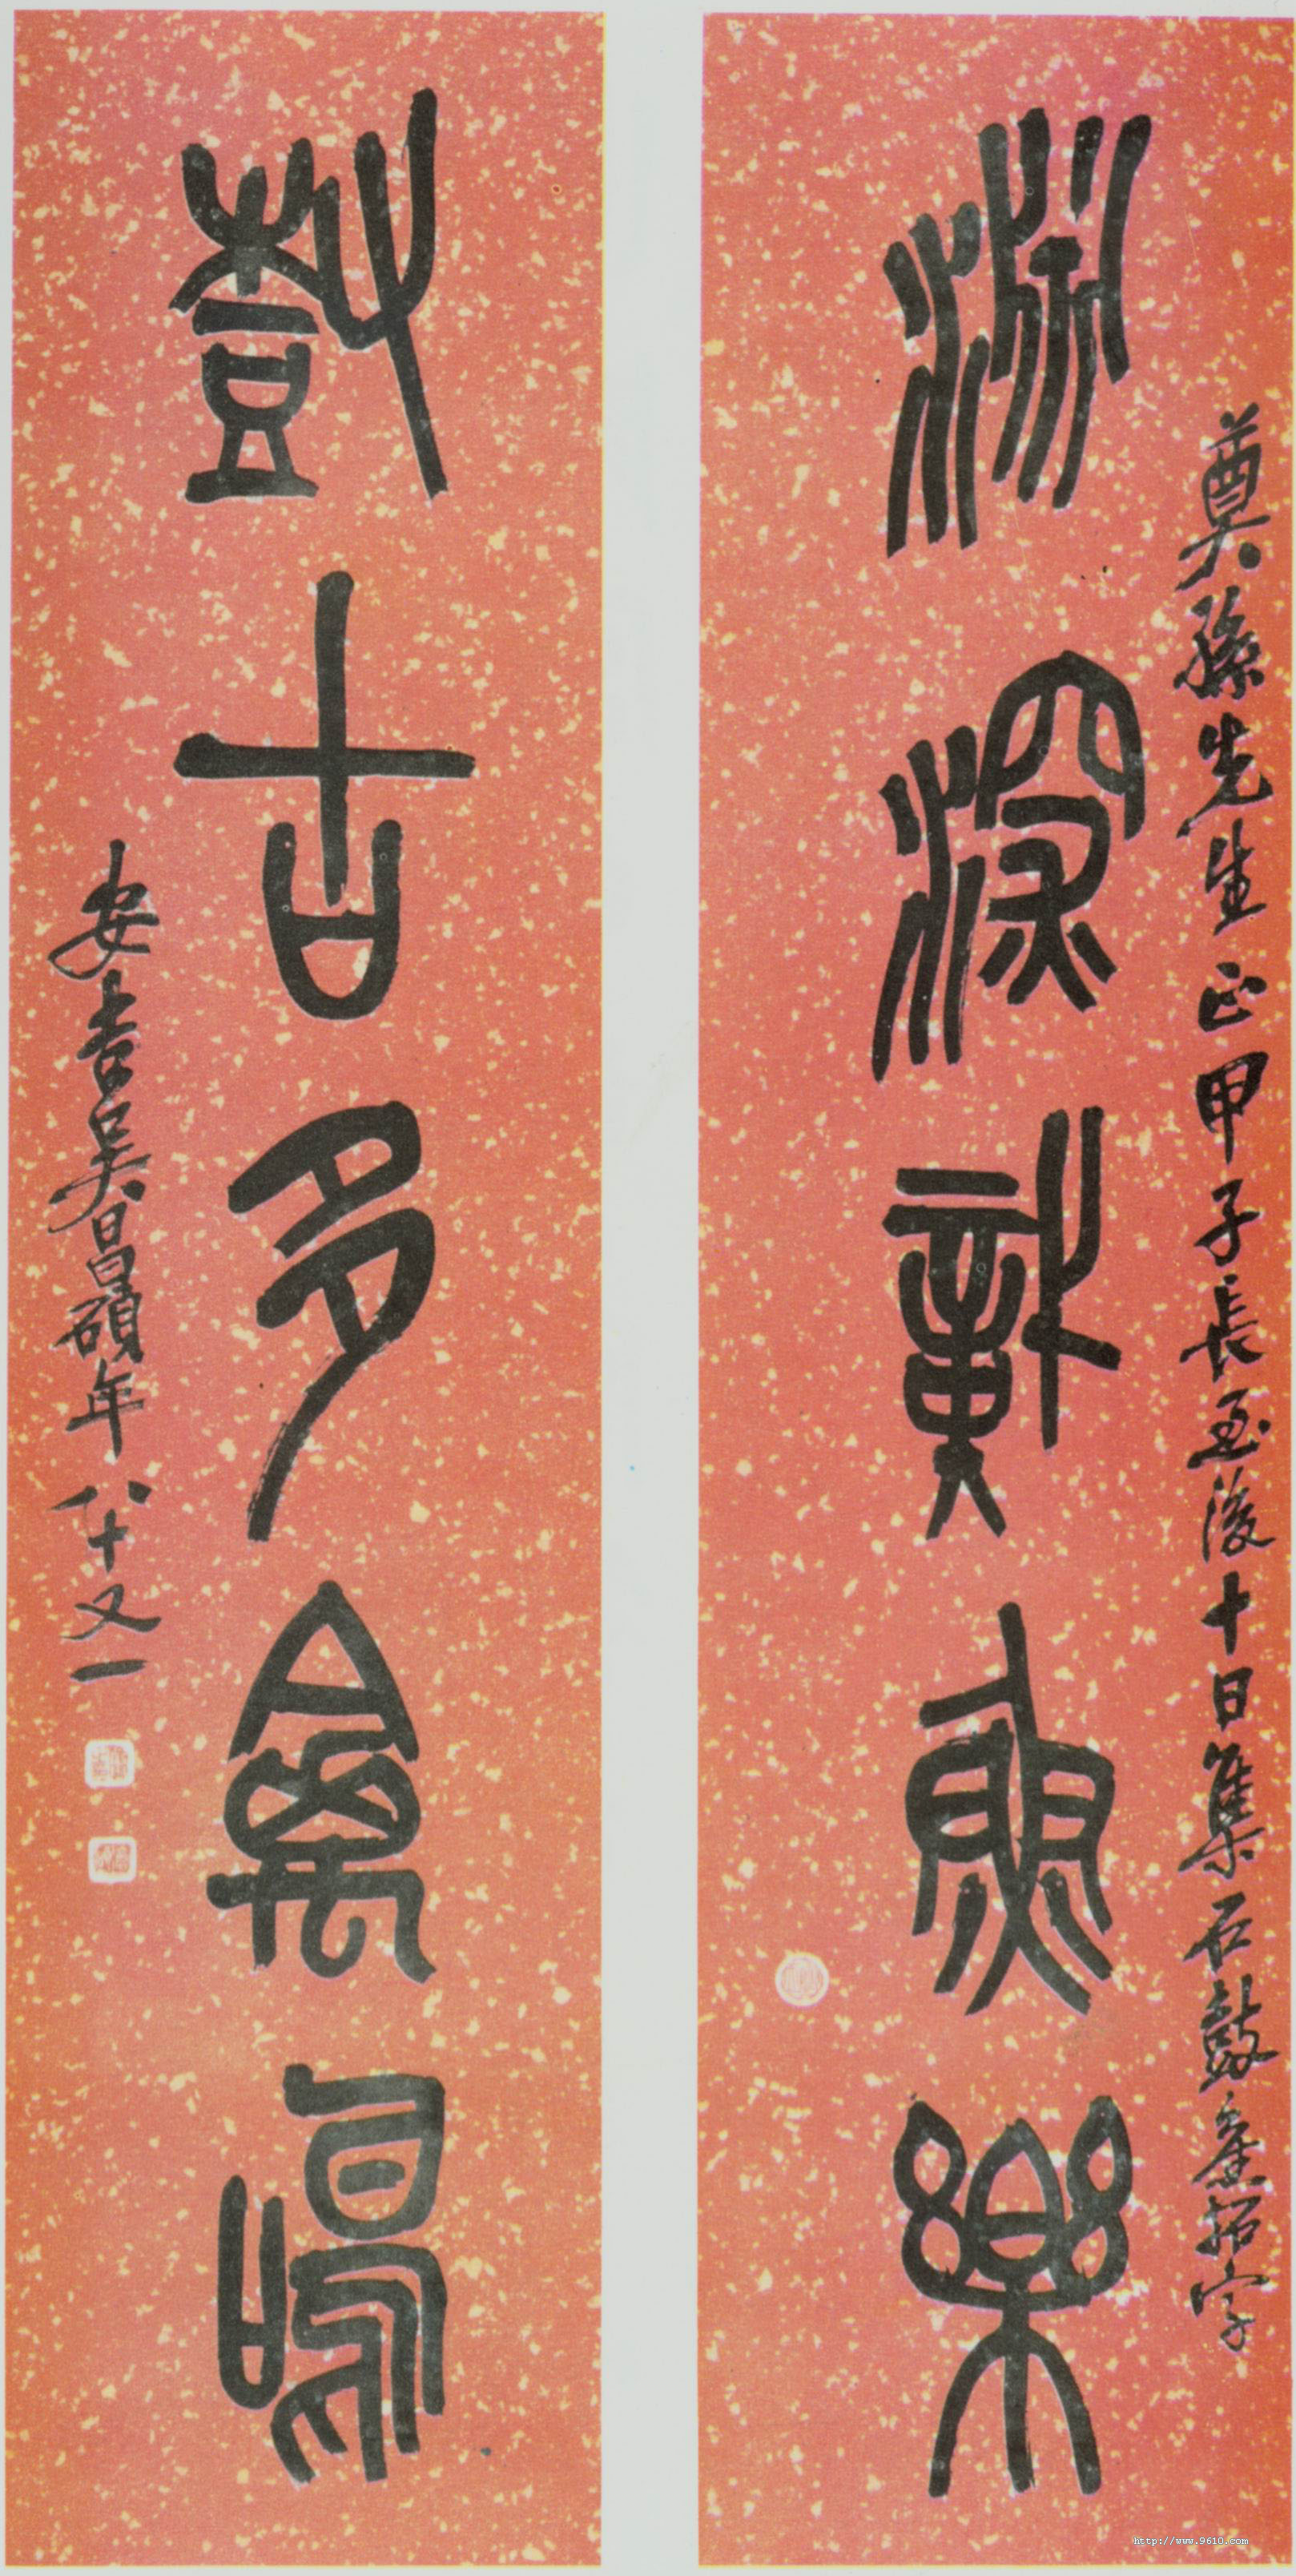 奠孫先生正甲子長至後十日集石鼓舊拓字
淵深魚樂
樹古多禽鳴
安吉吳昌碩年八十又一
http://www.9610.com